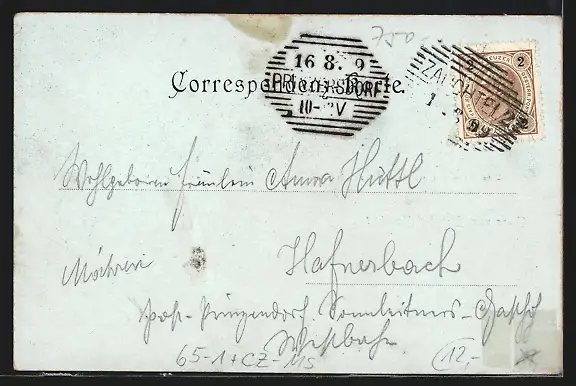 16 8. 9
Correspondenz-Karte.
10-
2 KREUZER 2
Wohlgeboren Fräulein Anna Hüttl
Hafnerbach
Mähren
Post-Prinzendorf Sonnleitners-Gasth
Westbahn
65-1+CZ-MS
12,-